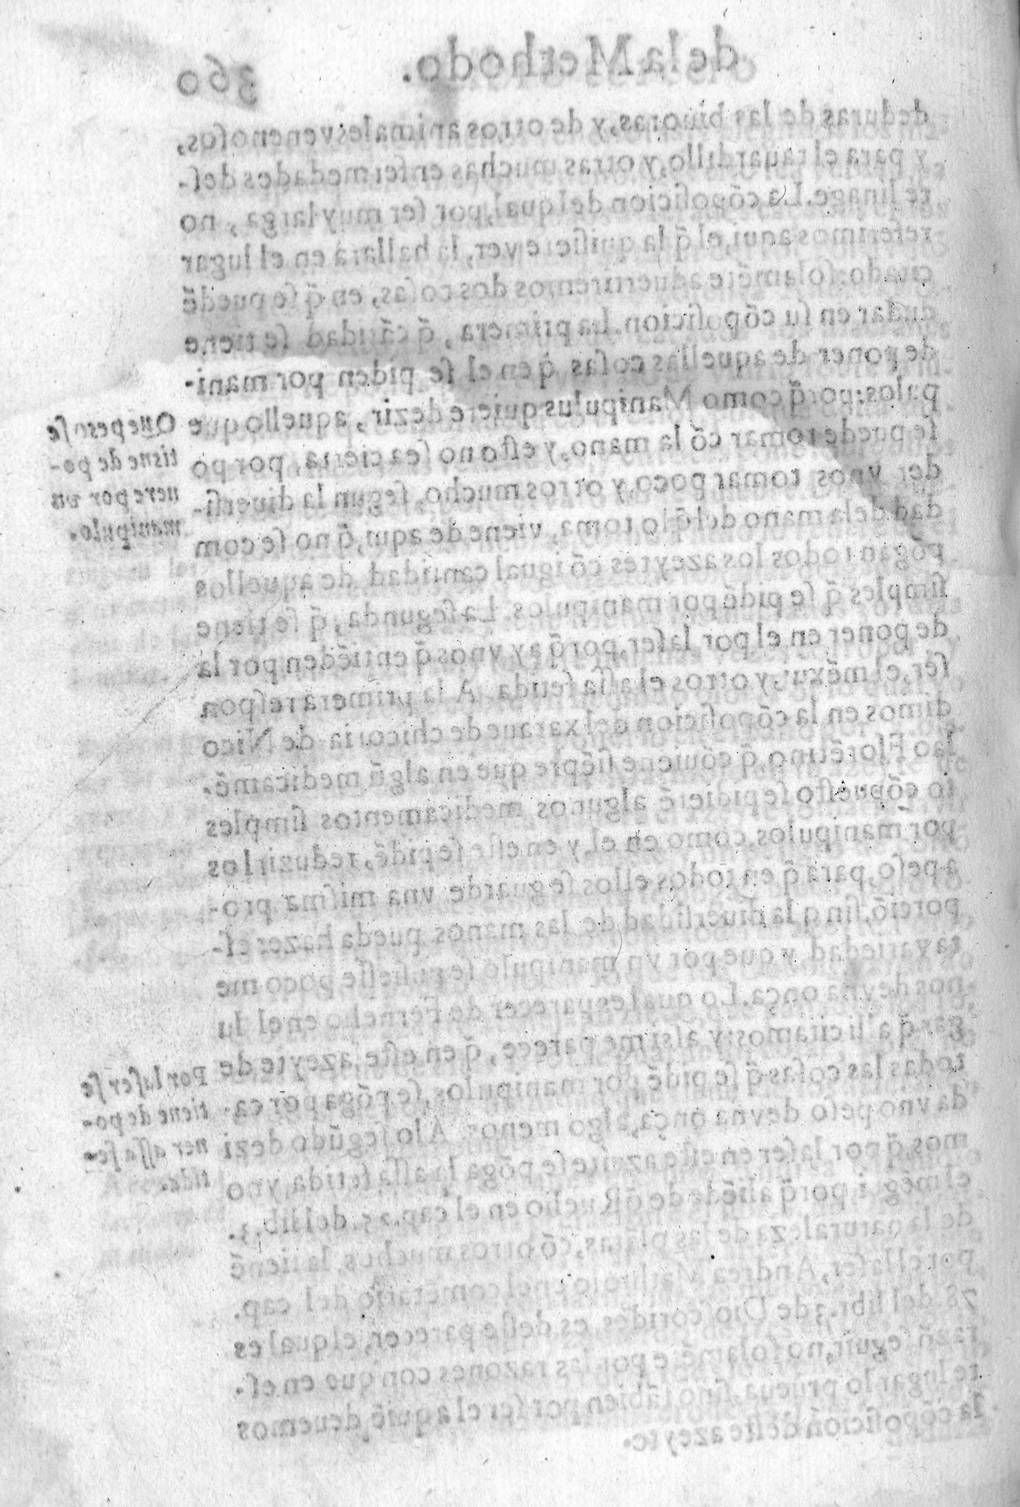 de la Methodo. 360
deduras de las biuoras, y de otros animales venenosos,
y para el tauardillo, y otras muchas enfermedades des-
te linage. La cōposicion del qual, por ser muy larga, no
referimos aqui, el q̄ la quisiere ver, la hallara en el lugar
citado: solamēte aduertiremos dos cosas, en q̄ se puedē
dudar en su cōposicion. La primera, q̄ cātidad se tiene
de poner de aquellas cosas q̄ en el se piden por mani-
pulos: porq̄ como Manipulus quiere dezir, aquello que
se puede tomar cō la mano, y esto no sea cierta, por po
der vnos tomar poco, y otros mucho, segun la diuersi-
dad dela mano del q̄ lo toma, viene de aqui, q̄ no se com
pogan todos los azeytes cō igual cantidad de aquellos
simples q̄ se pidē por manipulos. La segunda, q̄ se tiene
de poner en el por laser, porq̄ ay vnos q̄ entiēden por la
ser, el mēxuy, y otros el assa fetida. A la primera respon
dimos en la cōposicion del xaraue de chicoria de Nico
lao Florētino, q̄ cōuiene siēpre que en algū medicamē-
to cōpuesto se pidierē algunos medicamentos simples
por manipulos, como en el, y en este se pidē, reduzirlos
a peso, para q̄ en todos ellos se guarde vna misma pro-
porciō, sin q̄ la diuersidad de las manos pueda hazer es-
ta variedad, y que por vn manipulo se pusiesse poco me
nos de vna onça. Lo qual es parecer de Fernelio en el lu
gar q̄ alli citamos: y assi me parece, q̄ en este azeyte de
todas las cosas q̄ se pidē por manipulos, se pōga por ca-
da vno peso de vna onça, algo menos. A lo segūdo dezi
mos, q̄ por laser en este azeite se pōga la assa fetida, y no
el mēgui, porq̄ aliēde de q̄ Ruelio en el cap. del lib. 3.
de la naturaleza de las plātas, cō otros muchos, la tienē
por el laser, Andrea Mathiolo en el comētario del cap.
78. del libr. 3. de Dioscorides, es deste parecer, el qual es
razō seguir, no solamēte por las razones con que en es-
te lugar lo prueua, sino tābien por ser el a quiē deuemos
la cōposicion deste azeyte.
Que peso se
tiene de po-
ner e por vn
manipulo.
Por laser se
tiene de po-
ner assa fe-
tida.